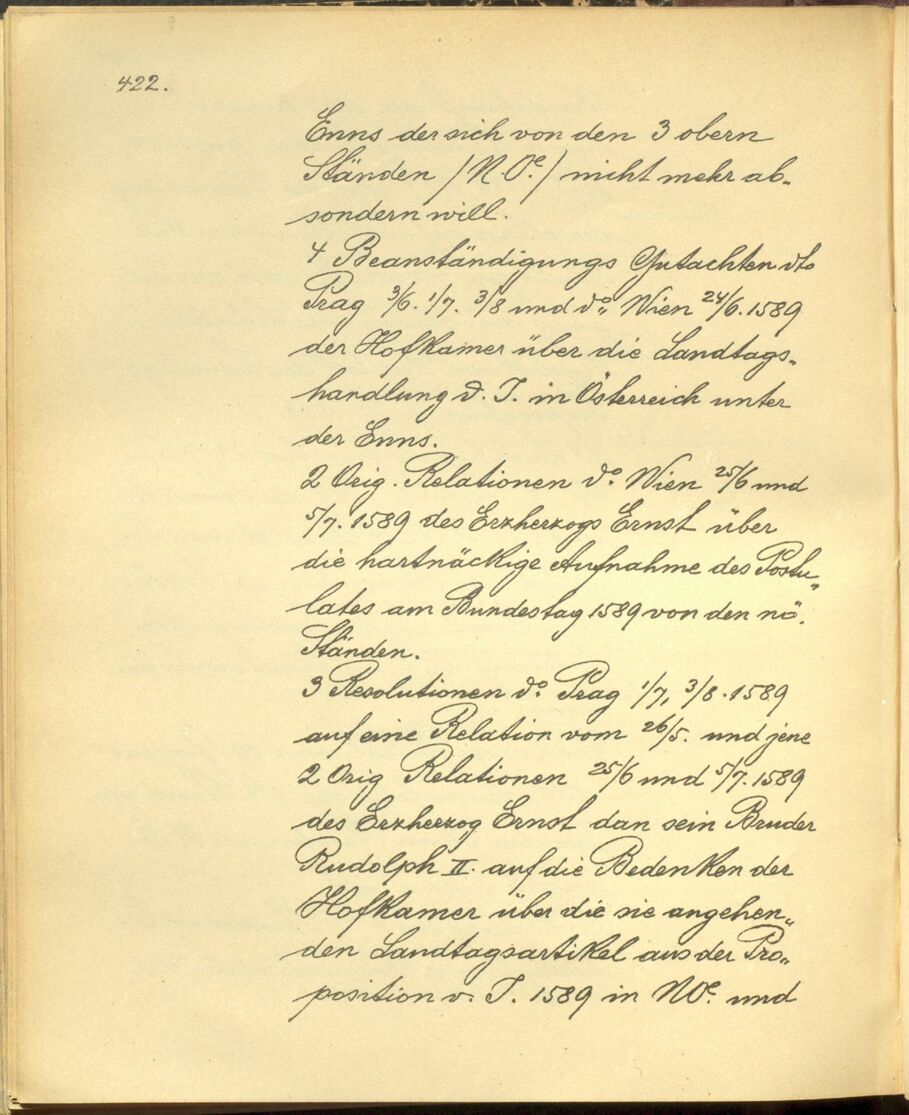 422.
Enns der sich von den 3 obern
Ständen /N.Oe./ nicht mehr ab„
sondern will.
4 Beanständigungs Gutachten dto
Prag 3/6. 1/7. 3/8 und do: Wien 24/6. 1589
der Hofkamer über die Landtags„
handlung d. J. in Österreich unter
der Enns.
2 Orig. Relationen do: Wien 25/6 und
5/7. 1589 des Erzherzogs Ernst über
die hartnäckige Aufnahme des Postu„
lates am Bundestag 1589 von den nö.
Ständen.
3 Resolutionen do: Prag 1/7, 3/8. 1589
auf eine Relation vom 26/5. und jene
2 Orig Relationen 25/6 und 5/7. 1589
des Erzherzog Ernst dan sein Bruder
Rudolph II. auf die Bedenken der
Hofkamer über die sie angehen„
den Landtagsartikel aus der Pro„
position v. J. 1589 in NOe. und